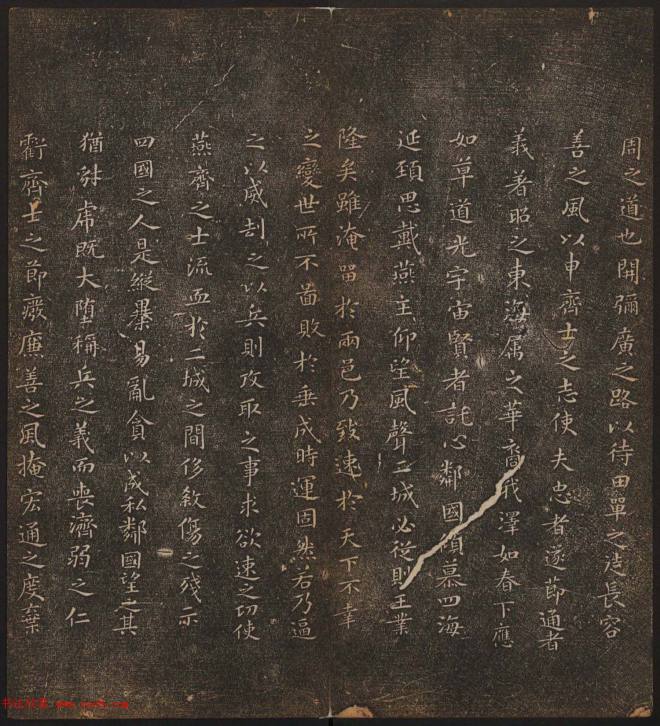 周之道也開彌廣之路以待田單之徒長容
善之風以申齊士之志使夫忠者遂節通者
義著昭之東海属之華裔我澤如春下應
如草道光宇宙賢者託心鄰國傾慕四海
延頸思戴燕主仰望風聲二城必從則王業
隆矣雖淹留於兩邑乃致速於天下不幸
之變世所不啚敗於垂成時運固然若乃逼
之以威刧之以兵則攻取之事求欲速之功使
燕齊之士流血於二城之間侈煞傷之殘示
四國之人是縱暴易亂貪以成私鄰國望之其
猶豺虎既大墮稱兵之義而喪濟弱之仁
虧齊士之節癈廉善之風掩宏通之度棄